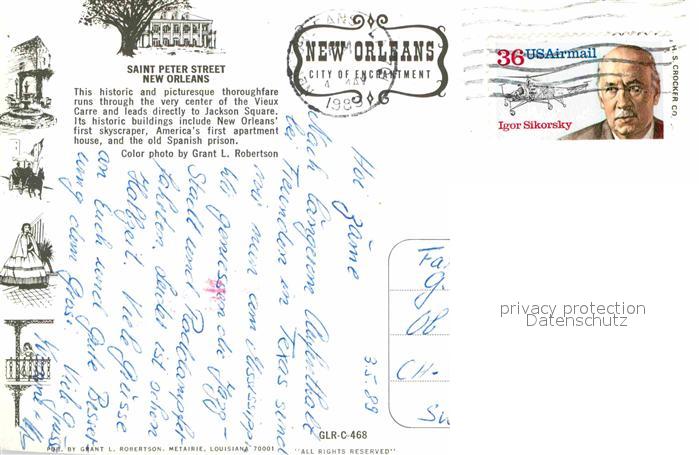 SAINT PETER STREET
NEW ORLEANS
This historic and picturesque thoroughfare
runs through the very center of the Vieux
Carre and leads directly to Jackson Square.
Its historic buildings include New Orleans'
first skyscraper, America's first apartment
house, and the old Spanish prison.
Color photo by Grant L. Robertson
NEW ORLEANS
CITY OF ENCHANTMENT
36 USAirmail
Igor Sikorsky
H.S. CROCKER CO.
3.5.89
Hoi zäme
Nach längerem Aufenthalt
bei Freunden in Texas sind
wir nun am Mississippi.
Wir geniessen die Jazz-
Stadt und Raddampfer-
fahrten. Leider ist schon
Halbzeit. Viele Grüsse
an Euch und gute Besser-
ung dem Grosi.
CH-
privacy protection
Datenschutz
GLR-C-468
PUB. BY GRANT L. ROBERTSON, METAIRIE, LOUISIANA 70001
"ALL RIGHTS RESERVED"